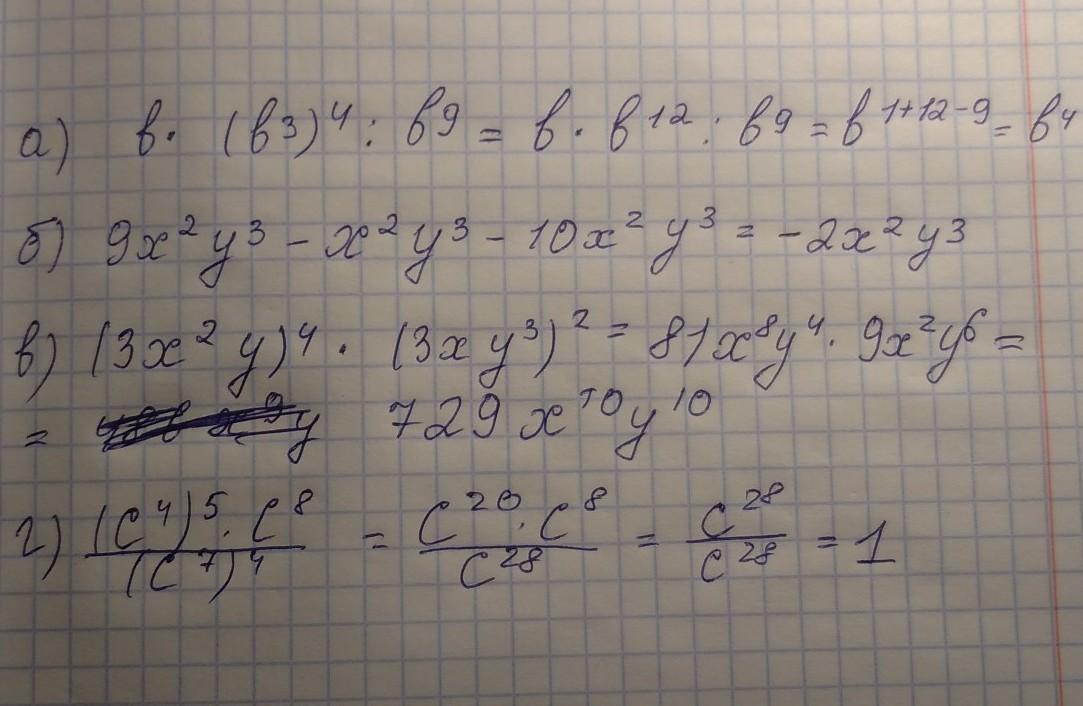 а) b · (b³)⁴ : b⁹ = b · b¹² : b⁹ = b¹⁺¹²⁻⁹ = b⁴
б) 9x²y³ - x²y³ - 10x²y³ = -2x²y³
в) (3x²y)⁴ · (3xy³)² = 81x⁸y⁴ · 9x²y⁶ =
= 729x¹⁰y¹⁰
г) (c⁴)⁵ · c⁸ / (c⁷)⁴ = c²⁰ · c⁸ / c²⁸ = c²⁸ / c²⁸ = 1